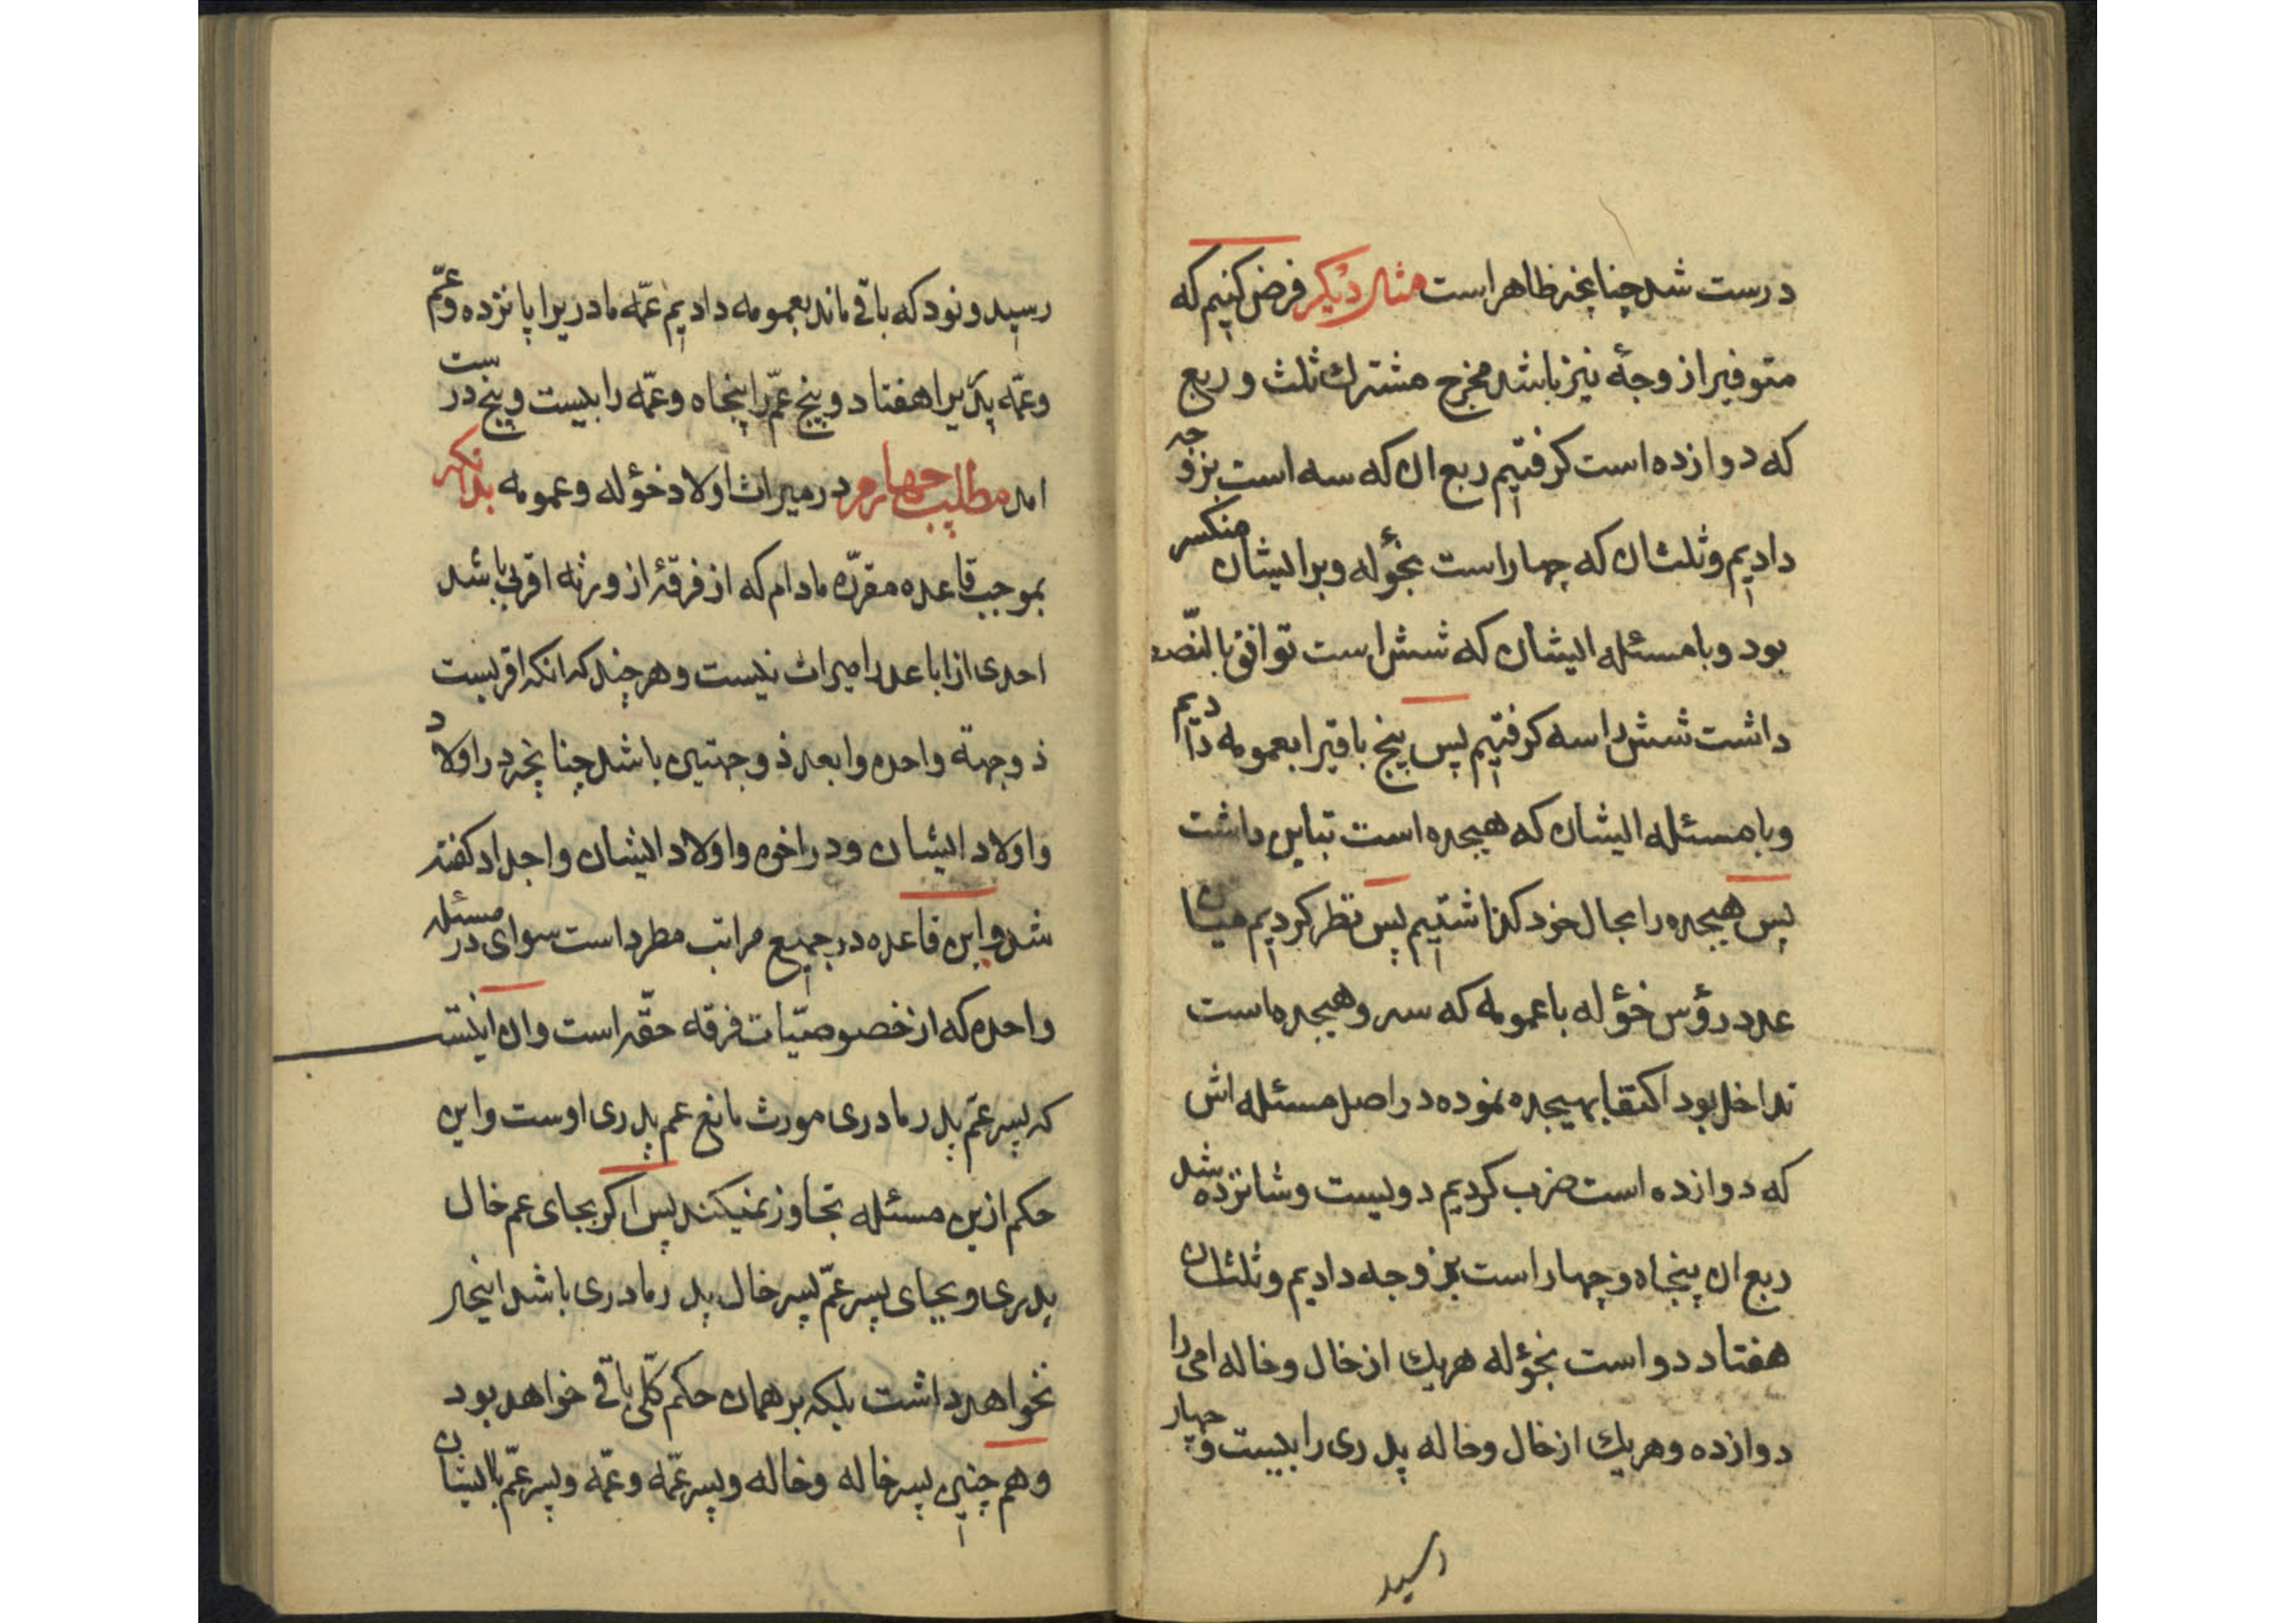 درست شد چنانچه ظاهر است مثال دیگر فرض کنیم که
متوفیرا زوجهٔ نیز باشد مخرج مشترك ثلث و ربع
که دوازده است کرفتیم ربع ان که سه است بزوجه
دادیم و ثلث ان که چهار است بخؤله و بر ایشان منکسر
بود و با مسئله ایشان که شش است توافق بالنّصف
داشت شش را سه کرفتیم پس پنج باقیرا بعمومه دادیم
و با مسئله ایشان که هیجده است تباین داشت
پس هیجده را بحال خود کذاشتیم پس نظر کردیم میان
عدد رؤس خؤله با عمومه که سه و هیجده است
تداخل بود اکتفا بهیجده نموده در اصل مسئله اش
که دوازده است ضرب کردیم دویست و شانزده شد
ربع ان پنجاه و چهار است بزوجه دادیم و ثلث ان
هفتاد دو است بخؤله هریك از خال و خاله امی را
دوازده و هریك از خال و خاله پدری را بیست و چهار
رسید
رسید و نود که باقی ماند بعمومه دادیم عمّه مادریرا پانزده و عمّ
و عمّه پدریرا هفتاد و پنج عمّ را پنجاه و عمّه را بیست و پنج درست
امد مطلب چهارم در میراث اولاد خؤله و عمومه بدانکه
بموجب قاعده مقرّره مادام که از فرقهٔ از ورثه اقربی باشد
احدی از اباعد را میراث نیست و هر چند که انکه اقربست
ذو جهة واحده و ابعد ذو جهتین باشد چنانچه در اولاد
و اولاد ایشان و در اخوه و اولاد ایشان و اجداد کفته
شد و این قاعده در جمیع مراتب مطرد است سوای در مسئله
واحده که از خصوصیّات فرقه حقّه است و ان اینست
که پسر عمّ پدر مادری مورث مانع عم پدری اوست و این
حکم ازین مسئله تجاوز نمیکند پس اکر بجای عم خال
پدری و بجای پسر عمّ پسر خال پدر مادری باشد اینحال
نخواهد داشت بلکه بر همان حکم کلّی باقی خواهد بود
و هم چنین پسر خاله و خاله و پسر عمّه و عمّه و پسر عمّ با ایشان